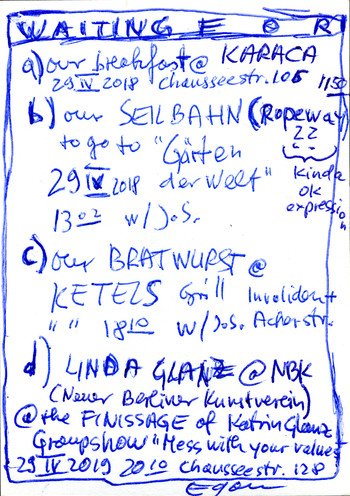 WAITING FOR
a) our breakfast @ KARACA
29 IV 2018 chausseestr. 105 11 50
b) our SEILBAHN (Ropeway)
to go to "Gärten ??
29 IV 2018 der Welt" kinda
ok
13 02 w/ J.S. expression
c) our BRATWURST @
KETELS Grill Invaliden +
" " 18 10 w/ J.S. Ackerstr.
d) LINDA GLANZ @ NBK
(Neuer Berliner Kunstverein)
@ the FINISSAGE of Katrin Glanz
Groupshow "Mess with your values
29 IV 2019 20 10 chausseestr. 128
Egon